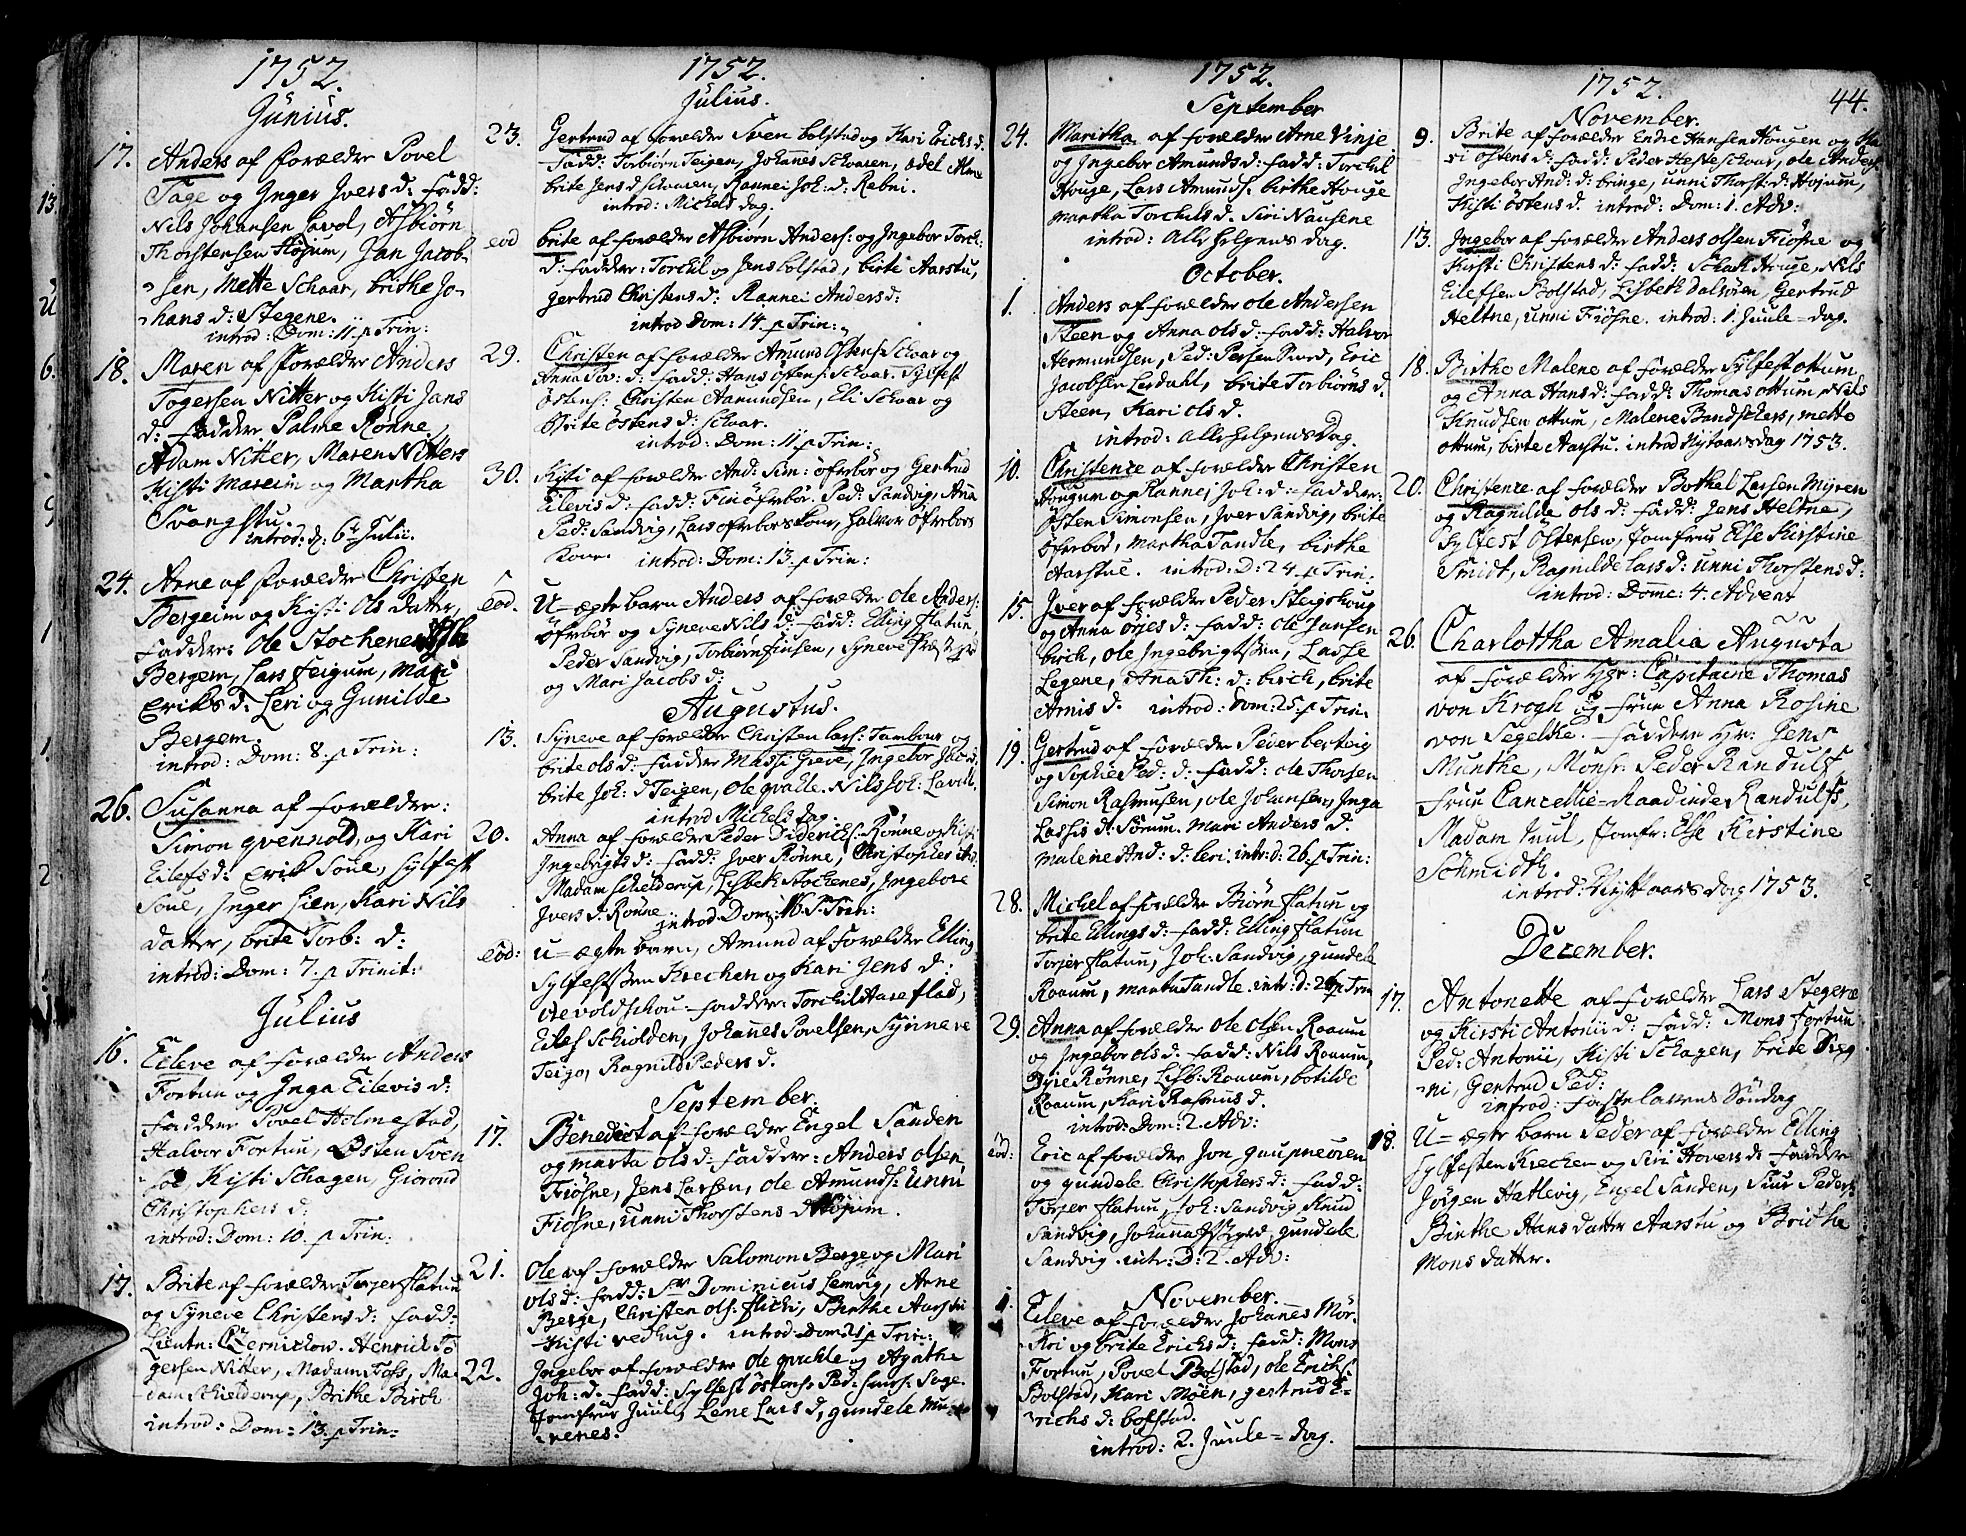 1752.
Junius.
17. Anders af forældre Povel
Tage og Inger Ivers d: fadd:
Nils Johansen Lavol, Asbiörn
Thorstensen Höjum, Jan Jacob-
sen, Mette Schaar, brithe Jo-
hans d: Stegene.
introd: Dom: 11. p Trin:
18. Maren af forældre Anders
Togersen Nitter og Kisti Jans
d: fadder Palme Rønne,
Adam Nitter, Maren Nitters
Kisti Mareim og Martha
Svangstu.
introd: d: 6 Julii.
24. Arne af forældre Christen
Bergeim og Kisti Ols datter,
faddere Ole Stochenes
Bergem, Lars Feigum, Mari
Eriks d: Leri og Gunilde
Bergem.
introd: Dom: 8. p Trin:
26. Susanna af forældre:
Simon qvenvold, og Kari
Eilefs d: Erik Soue, Sylfest
Soue, Inger Lien, Kari Nils
datter, brite Torb: d:
introd: Dom: 7. p Trinit:
Julius
16. Eileve af forældre Anders
Fortun og Inga Eilevis d:
faddere Povel Holmestad,
Halvor Fortun, Østen Sven
Kisti Schagen, Giorond
Christophers d:
introd: Dom: 10. p Trin:
17. Brite af forældre Torjer flatun
og Syneve Christens d: fadd:
Lieutn: Henrich To
gersen Nitter, Madam Foss, Ma-
dam Schielderup, Brithe Birch
introd: Dom: 13. p Trin:
1752.
Julius.
23. Gertrud af forældre Sven bolstad og Kari Erichs d.
fadd: Torbiörn Teigen, Johanes Schaaren,
brite Jens d Schaaren, Rannei Joh: d: Rebni.
introd: Michels dag.
eod brite af forældre Asbiorn Anders: og Ingebor Torch:
d: fadder: Torchil og Jens bolstad, birte Aarstu,
gertrud Christens d: Rannei Anders d:
introd Dom: 14. p Trin:
29. Christen af forældre Amund Ostens: Schaar og
Anna d: fadd: Hans östens: Schaar. Sylfest
östens: Christen Aamundsen, Eli Schaar og
Brite östens d: Schaar.
introd: Dom: 11. p Trin:
30. Kisti af forældre And: Sim: öfrebör og Gertrud
Eilevis d: fadd: Fin öfrebör. Ped: Sandvig, Ana
Ped: Sandvig, Lars ofrebors kone, halvor öfrebors
kone. introd: Dom: 13. p Trin:
eod. U-ægte barn Anders af forældre Ole Anders:
öfrebör og Syneve Nils d: fadd: Elling flatun,
Peder Sandvig, Torbiörn finsen, Syneve
og Mari Jacobs d:
Augustus.
13. Syneve af forældre Christen lars: Tambour og
brite ols d: fadder Massi Greve, Ingebor Jac: d:
brite Joh: d Teigen, Ole qvalle. Nils Joh: Lavoll,
introd Michels dag.
20. Anna af forældre Peder Diderichs: Rönne og Kisti
Ingebrigts d: fadd: Iver Rönne, Christopher
Madam Schielderup, Lisbeth Stochenes, Ingebore
Ivers d: Rönne introd Dom: 16. p. Trin:
eod: u-ægte barn, Amund af forældre Elling
Sylfestsen Krechen og Kari Jens d:
fadder: Torchil Aaseflad,
Eilef Schiolden, Johanes Povelsen, Synneve
Teigo, Ragnild Peders d.
September.
17. Benedict af forældre Engel Sanden
og marta ols d: faddere: Anders olsen,
Fiösne, Jens Larsen, ole Amunds: Unni
Fiösne, Unni Thorstens d Höjum.
21. Ole af forældre Salomon Berge og Mari
ols d: fadd: Sr Dominicus Lemvig, Arne
Berge, Christen ols: flichi, Birthe Aarstu
Kristi vedhug. introd Dom 21 p Trin:
22. Ingebor af forældre Ole qvahle og Agathe
Joh: d. fadd: Sylfest östens: Ped: iuurs: Soge
Jomfrue Juul, Lene Lars d, gundele Mu-
nenes.
1752.
September
24. Maritha af forældre Arne Vinje
og Ingebor Amunds d: fadd: Torchil
Houge, Lars Amunds: birthe Houge
Martha Torchels d. Siri Nausene
introd: Alle helgens dag.
October.
1. Anders af forældre Ole Andersen
Steen og Anna ols d: fadd: Halvor
Hermundsen, Ped: Persen Eric
Jacobsen Lerdahl, brite Torbiörns d.
Steen, Kari ols d.
introd: Alle helgens dag.
10. Christence af forældre Christen
Hougum og Rannei Joh: d: faddere:
Östen Simonsen, Iver Sandvig, brite
Öfrebör, martha Tandle, birthe
Aarstue. introd: d: 24. p Trin:
15. Iver af forældre Peder Steigehoug
og Anna örjes d: fadd: ole Jansen
birch, Ole Ingebrigtsen, Lasse
Legene, Ana Th: d: birch, brite
Arnis d. introd: Dom: 25. p Trin.
19. Gertrud af forældre Peder bertvig
og Sophie Ped: d: fadd: ole Thorsen
Simon Rasmusen, ole Johansen, Inga
Lassis d: Sorum. Mari Anders d.
Malene And: d: Leri. intr: d: 26. p Trin:
28. Michel af forældre Biörn flatun og
brite Ellings d: fadd: Elling flatun
Torjer flatun, Joh: Sandvig, gundele
Roaum, marta Tandle. intr: d: 26 p Trin
29. Anna af forældre Ole Olsen Roaum
og Ingebor ols d. fadd: Nils Roaum,
Rönne, Lisb: Roaum, botilde
Roaum, Kari Rasmus d.
introd: Dom: 2. Adv:
eod: Eric af forældre Jon gaupneören
og gundele Christophers d: fadd:
Torjer flatun, Joh: Sandvig, Knud
Sandvig, Johanna gundele
Sandvig. intr: D: 2. Adv:
November.
1. Eileve af forældre Johanes Mör-
kri og brite Erichs d: fadd: Mons
Fortun, Povel Bolstad, ole Erichs:
Bolstad, Kari Möen, gertrud E-
richs d: bolstad.
introd: 2. Juule-dag.
1752.
44.
November.
9. Brite af forældre Endre Hansen Hougen og Ka-
ri östens d: fadd: Peder Hesteschaar, ole Anders:
Ingebor And: d: bringe, unni Thorst: d: Hojum,
Kisti östens d. introd: Dom: 1. Adv:
13. Ingebor af forældre Anders olsen Fiösne og
Kirsti Christens d: fadd: Schak Houge, Nils
Eilefsen Bolstad, Lisbeth Dalsören, Gertrud
Heltne, unni Fiösne. introd: 1. Juule-dag.
18. Birthe Malene af forældre Sylfest ottum
og Anna Hans d: fadd: Thomas ottum, Nils
Knudsen ottum, Malene mette
ottum, birte Aarstu. introd Nytaarsdag 1753.
20. Christence af forældre Bothel Larsen Myren
og Ragnilde ols d: fadd: Jens Heltne,
Sylfest Östensen, Jomfrue Else Kirstine
Smidt, Ragnilde Lars d: unni Thorstens d:
introd: Domc: 4. Advent
26. Charlottha Amalia Augusta
af forældre Hr: Capitaine Thomas
von Krogh og frue Anna Rosine
von Segelke. Faddere Hr: Jens
Munthe, Monsr. Peder Randulf,
frue Cancellie-Raadinde Randulfs,
Madam Juul, Jomfr: Else Kirstine
Schmidth.
introd: Nytt aars dag 1753.
December.
17. Antonette af forældre Lars Stegene
og Kirsti Antonii d: fadd: Mons Fortun
Ped: Antonii, Kisti Schagen, brite Dreg
ni, Gertrud Ped:
introd: Fastelavens Söndag
18. U-ægte barn Peder af forældre Elling
Sylfesten Krechen og Siri Hovers d: faddere
Jörgen Hatlevig, Engel Sanden, Siur Peders:
Birthe Hans datter Aarstu og Brithe
Mons datter.